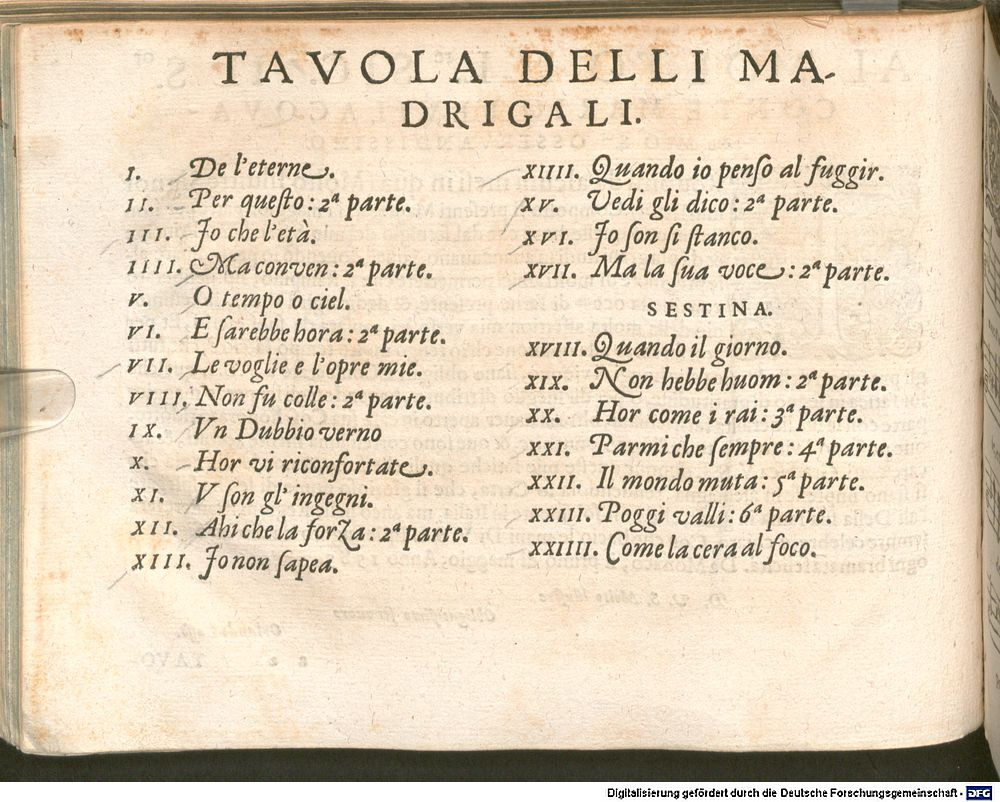 TAVOLA DELLI MA-
DRIGALI.
I. De l'eterne.
II. Per questo: 2ª parte.
III. Io che l'età.
IIII. Ma conven: 2ª parte.
V. O tempo o ciel.
VI. E sarebbe hora: 2ª parte.
VII. Le voglie e l'opre mie.
VIII. Non fu colle: 2ª parte.
IX. Vn Dubbio verno
X. Hor vi riconfortate.
XI. V son gl' ingegni.
XII. Ahi che la forza: 2ª parte.
XIII. Io non sapea.
XIIII. Quando io penso al fuggir.
XV. Vedi gli dico: 2ª parte.
XVI. Io son si stanco.
XVII. Ma la sua voce: 2ª parte.
SESTINA.
XVIII. Quando il giorno.
XIX. Non hebbe huom: 2ª parte.
XX. Hor come i rai: 3ª parte.
XXI. Parmi che sempre: 4ª parte.
XXII. Il mondo muta: 5ª parte.
XXIII. Poggi valli: 6ª parte.
XXIIII. Come la cera al foco.
Digitalisierung gefördert durch die Deutsche Forschungsgemeinschaft - DFG